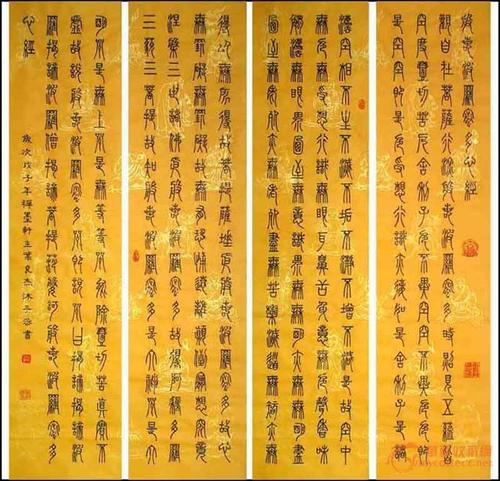 般若波羅蜜多心經
觀自在菩薩行深般若波羅蜜多時照見五蘊皆
空度壹切苦厄舍利子色不異空空不異色色即
是空空即是色受想行識亦復如是舍利子是諸
法空相不生不滅不垢不淨不增不減是故空中
無色無受想行識無眼耳鼻舌身意無色聲香味
觸法無眼界乃至無意識界無無明亦無無明盡
乃至無老死亦無老死盡無苦集滅道無智亦無
得以無所得故菩提薩埵依般若波羅蜜多故心
無罣礙無罣礙故無有恐怖遠離顛倒夢想究竟
涅槃三世諸佛依般若波羅蜜多故得阿耨多羅
三藐三菩提故知般若波羅蜜多是大神咒是大
明咒是無上咒是無等等咒能除壹切苦真實不
虛故說般若波羅蜜多咒即說咒曰揭諦揭諦波
羅揭諦波羅僧揭諦菩提薩婆訶般若波羅蜜多
心經
歲次戊子年禪墨軒主 良 沐手 書
mycollect.net